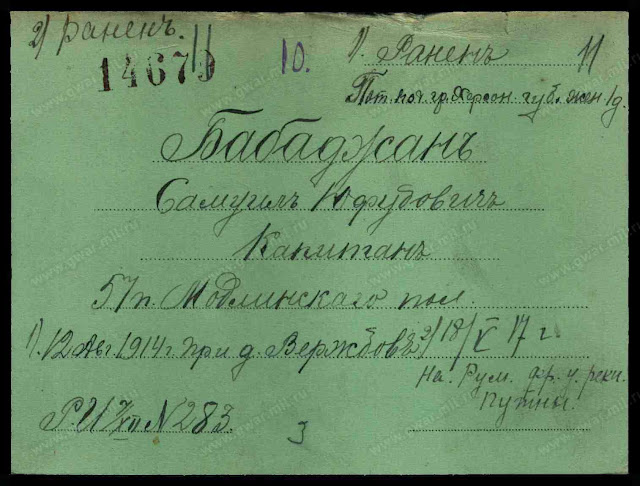 2) раненъ.
11
14679
10.
1). Раненъ
11
Пот. поч. гр. Херсон. губ. жен. 1 д.
Бабаджанъ
Самуилъ Юфудовичъ
Капитанъ
57 п. Модлинскаго пол.
1). 12 Авг. 1914 г. при д. Вержбовъ 2) 18/V 17 г.
На. Рум. фр. у реки.
Путны.
Р.И 7/XII N 283.
3
www.gwar.mil.ru